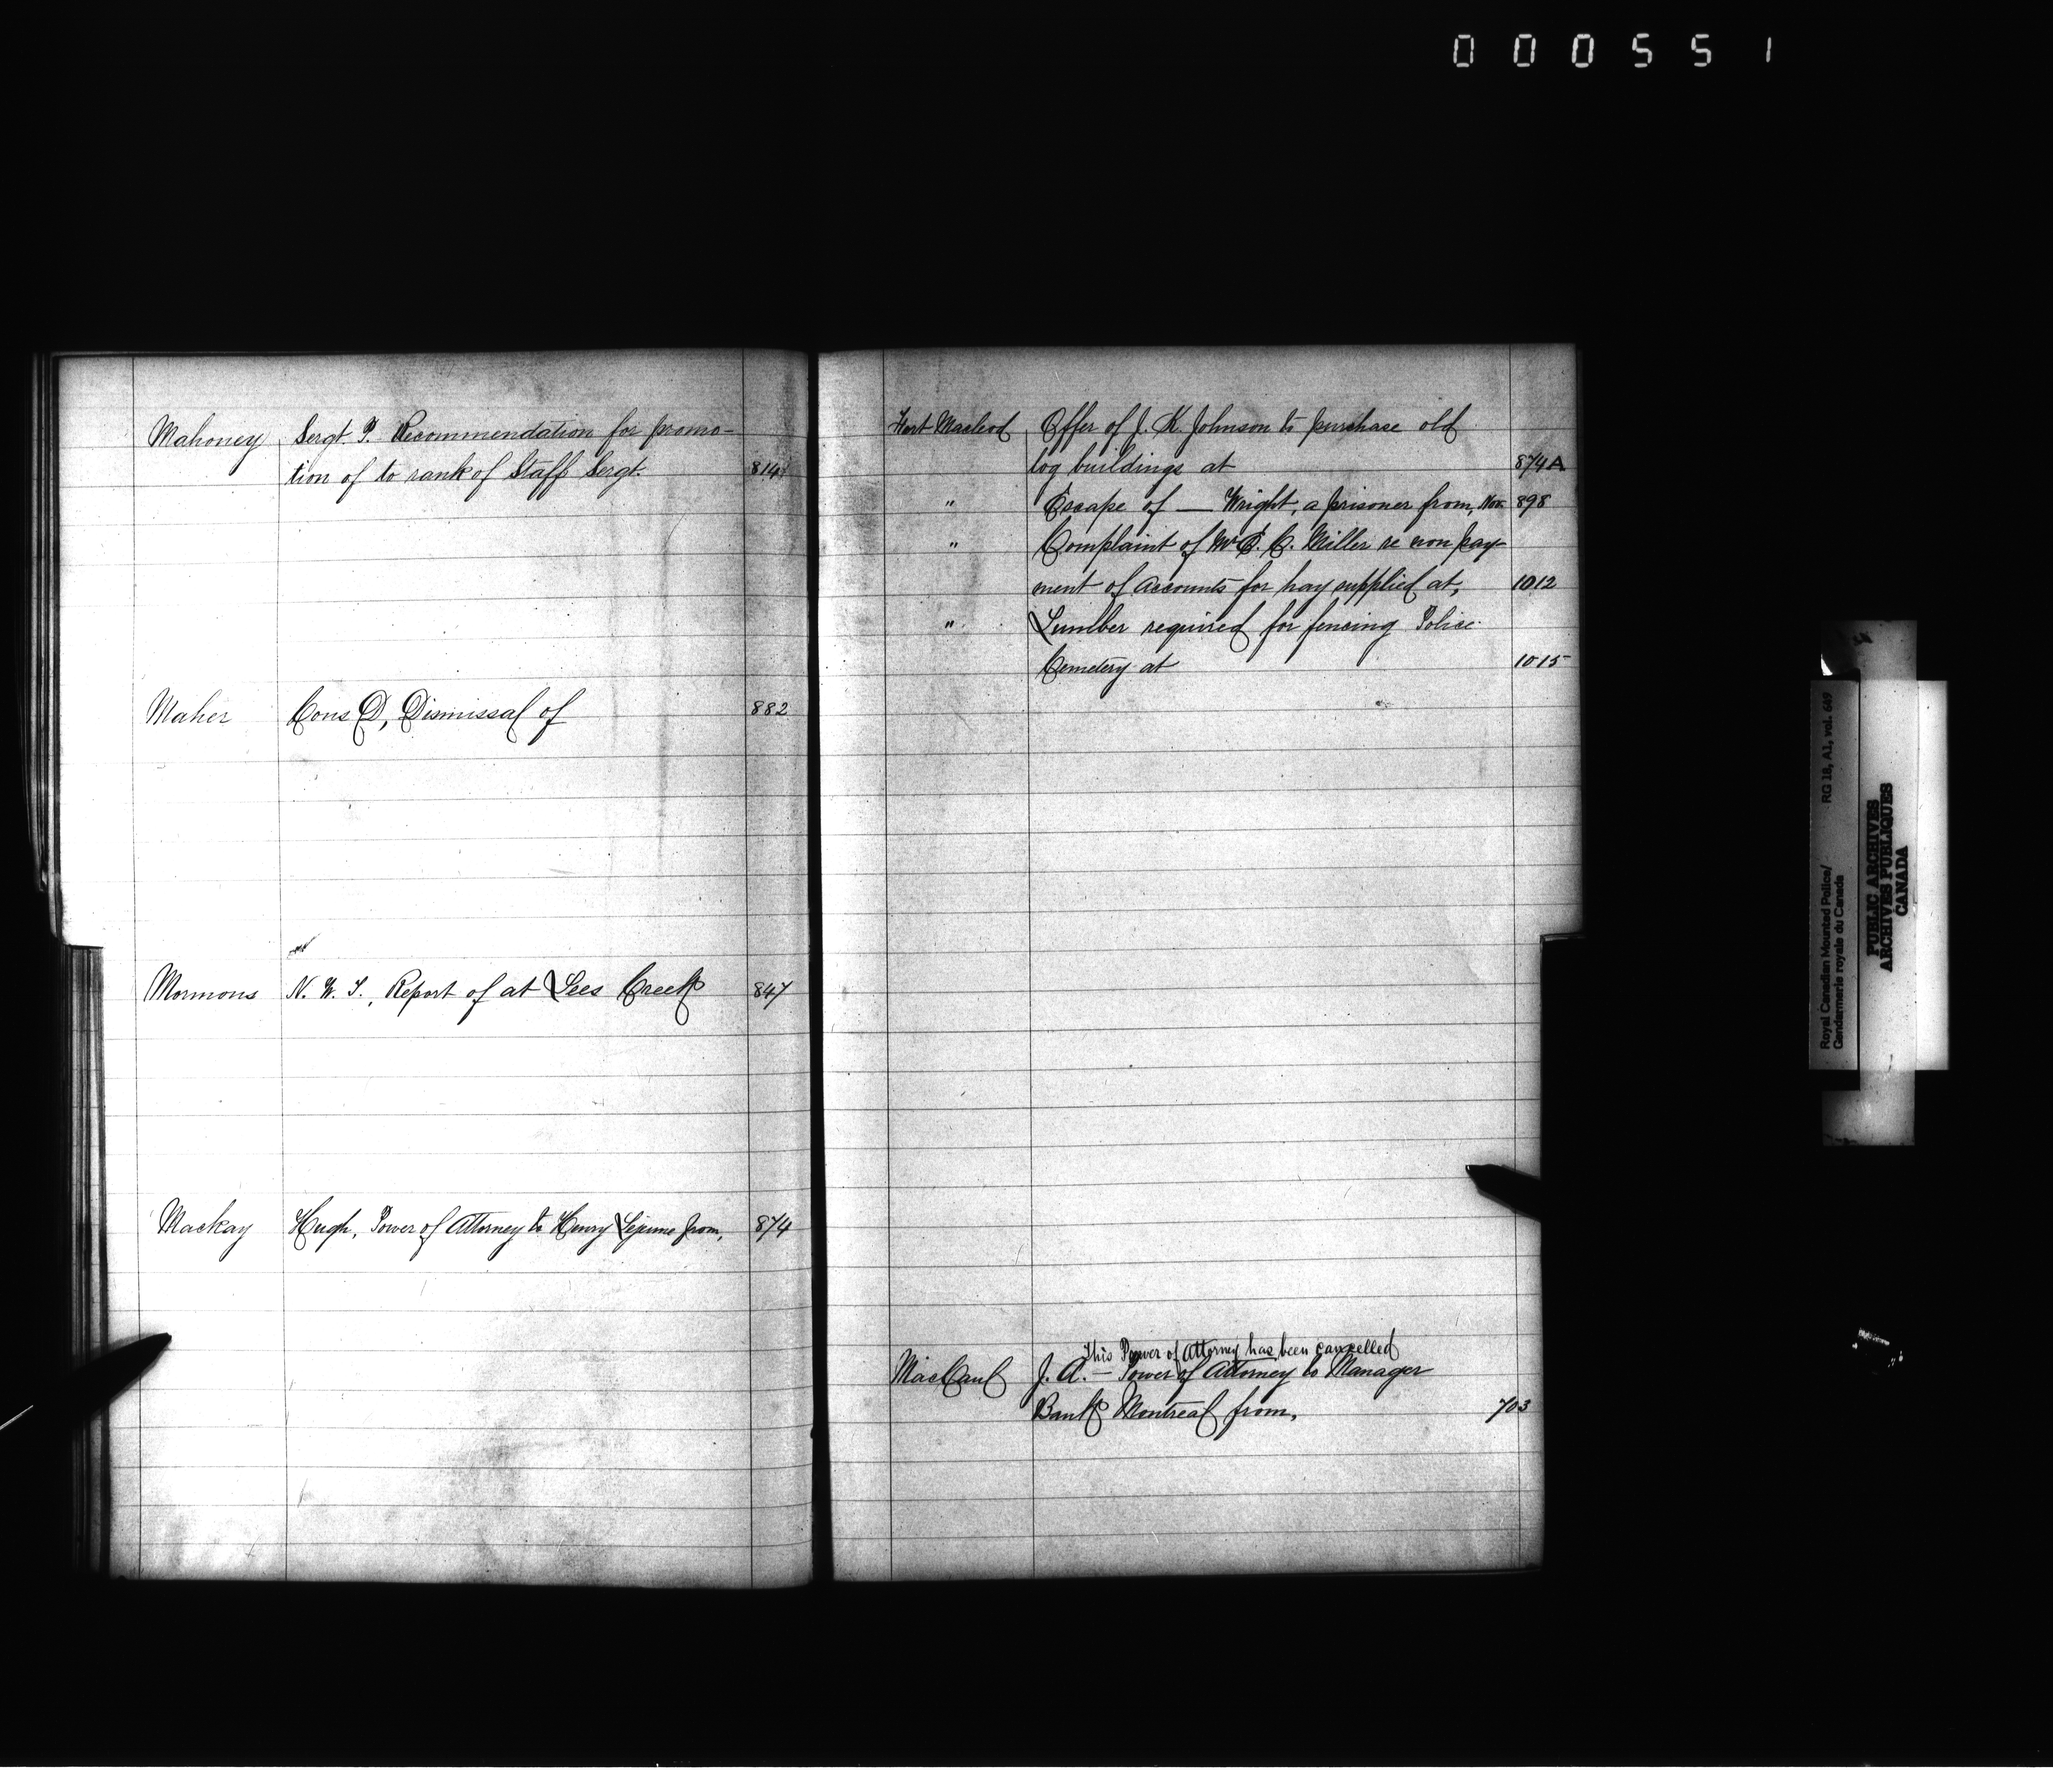 000551
Mahoney Sergt. P. Recommendation for promo-
tion of to rank of Staff Sergt. 814
Maher Cons D, Dismissal of 882
Mormons N. W. T., Report of at Lees Creek 847
Mackay Hugh, Power of Attorney to Henry Lejeune from, 874
Fort Macleod Offer of J. K. Johnson to purchase old
log buildings at 874A
" Escape of — Wright, a prisoner from, Nov. 898
" Complaint of Mr E. C. Miller re non pay-
ment of accounts for hay supplied at, 1012
" Lumber required for fencing Police
Cemetery at 1015
This Power of Attorney has been cancelled
MacCaul J. A. — Power of Attorney to Manager
Bank Montreal from, 703
Royal Canadian Mounted Police/ RG 18, A1, vol. 649
Gendarmerie royale du Canada
PUBLIC ARCHIVES
ARCHIVES PUBLIQUES
CANADA